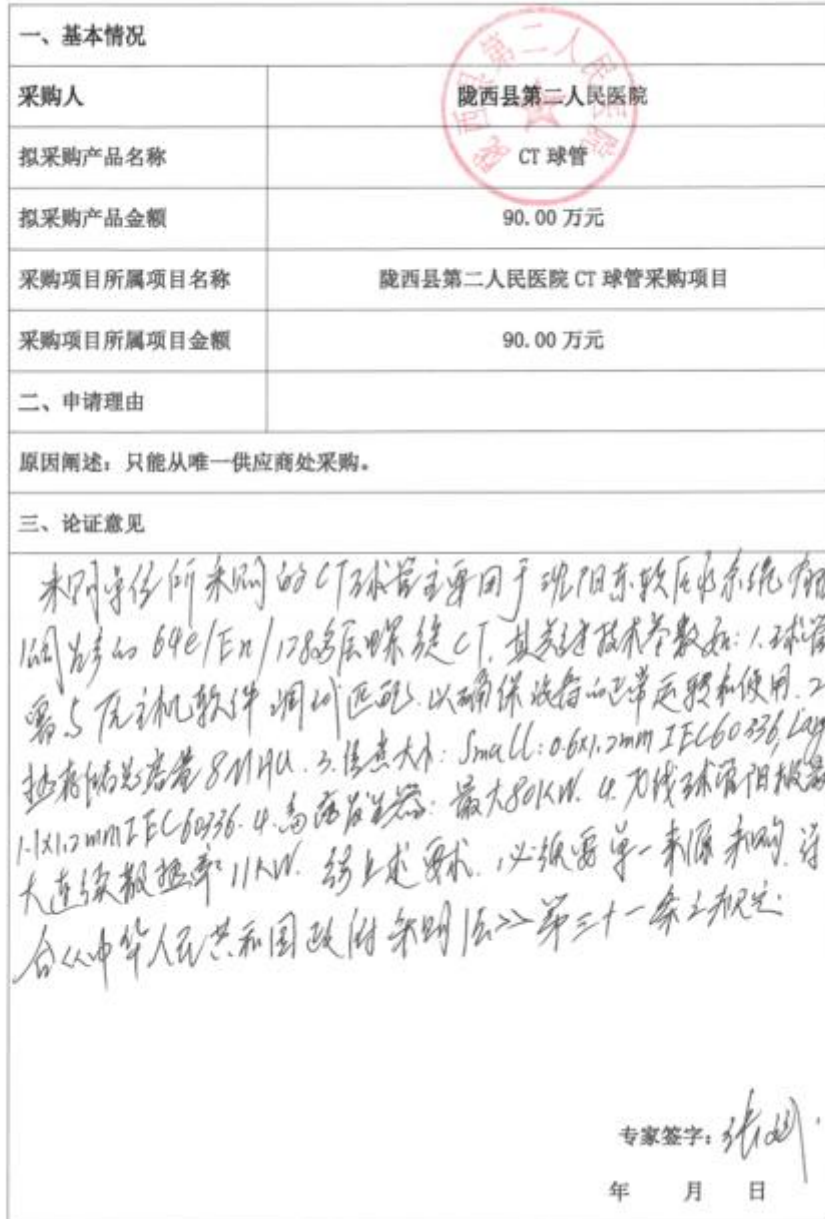 一、基本情况
采购人 陇西县第二人民医院
陇西县第二人民医院
拟采购产品名称 CT 球管
拟采购产品金额 90.00 万元
采购项目所属项目名称 陇西县第二人民医院 CT 球管采购项目
采购项目所属项目金额 90.00 万元
二、申请理由
原因阐述：只能从唯一供应商处采购。
三、论证意见
采购单位所采购的CT球管主要用于沈阳东软医疗系统有限
公司生产的 64e/En/128多层螺旋CT，其关键技术参数如：1.球管
需与原主机软件调试匹配，以确保设备的正常运转和使用．2
热存储总容量 8MHU．3.焦点大小：Small：0.6x1.2mm IEC60336，Larg
1.1x1.2mm IEC60336．4.高压发生器：最大80KW．4.X线球管阳极最
大连续散热率：11KW．综上述要求，必须要单一来源采购，符
合《中华人民共和国政府采购法》第三十一条之规定．
专家签字：张
年 月 日